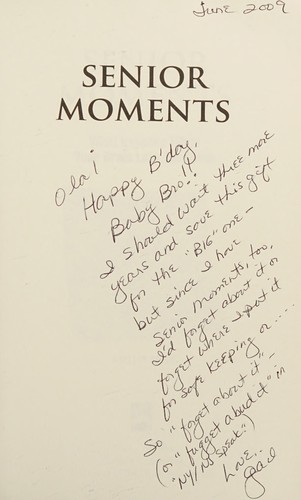 June 2009
SENIOR
MOMENTS
Ola!
Happy B'day,
Baby Bro!!
I should wait three more
years and save this gift
for the "BIG" one -
but since I have
Senior moments, too,
I'd forget about it or
forget where I put it
for safe keeping or....
So "forget about it" -
(or "fugget abud it" in
"NY/NJ speak".)
Love..
Gail